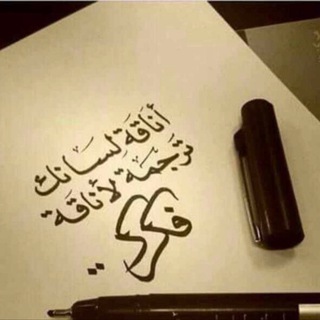 أناقة لسانك
ترجمة لأناقة
فكرك..